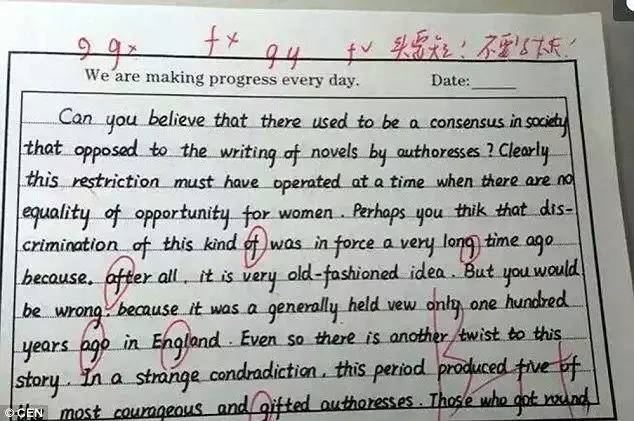 g g× f× g y f√
We are making progress every day. Date:
Can you believe that there used to be a consensus in society
that opposed to the writing of novels by authoresses ? Clearly
this restriction must have operated at a time when there are no
equality of opportunity for women . Perhaps you thik that dis-
crimination of this kind of was in force a very long time ago
because. after all , it is very old-fashioned idea . But you would
be wrong. because it was a generally held vew only one hundred
years ago in England . Even so there is another twist to this
story . In a strange condradiction . this period produced five of
most courageous and gifted authoresses . Those who got round
©CEN